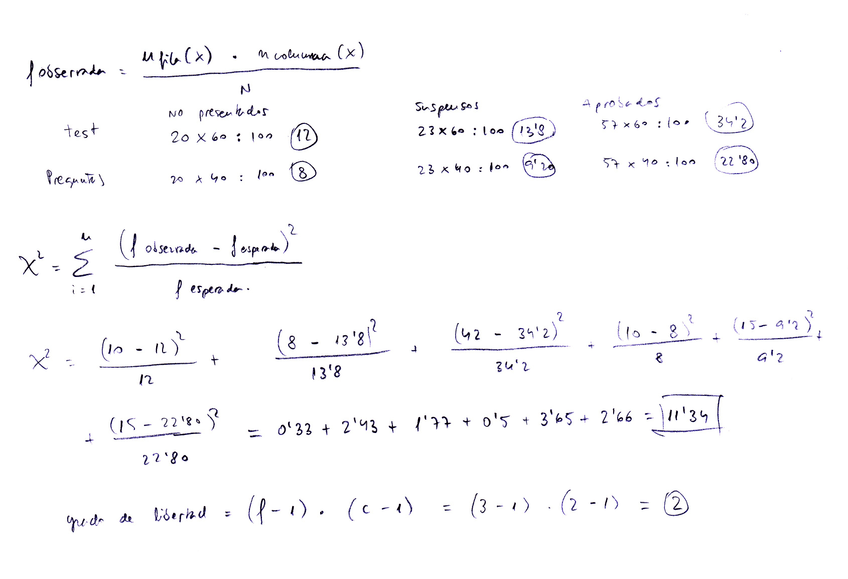 f observada = n fila (x) · n columna (x) / N
No presentados Suspensos Aprobados
test 20 x 60 : 100 12 23 x 60 : 100 13'8 57 x 60 : 100 34'2
Preguntas 20 x 40 : 100 8 23 x 40 : 100 9'20 57 x 40 : 100 22'80
χ² = Σ (f observada - f esperada)² / f esperada.
n
i = 1
χ² = (10 - 12)² / 12 + (8 - 13'8)² / 13'8 + (42 - 34'2)² / 34'2 + (10 - 8)² / 8 + (15 - 9'2)² / 9'2 +
+ (15 - 22'80)² / 22'80 = 0'33 + 2'43 + 1'77 + 0'5 + 3'65 + 2'66 = 11'34
grado de libertad = (f - 1) · (c - 1) = (3 - 1) · (2 - 1) = 2